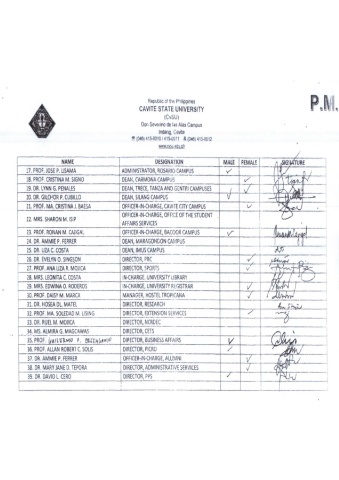 Republic of the Philippines
CAVITE STATE UNIVERSITY
(CvSU)
Don Severino de las Alas Campus
Indang, Cavite
www.cvsu.edu.ph
P.M.
NAME DESIGNATION MALE FEMALE SIGNATURE
17. PROF. JOSE P. LISAMA ADMINISTRATOR, ROSARIO CAMPUS ✓
18. PROF. CRISTINA M. SIGNO DEAN, CARMONA CAMPUS ✓
19. DR. LYNN G. PENALES DEAN, TRECE, TANZA AND GENTRI CAMPUSES ✓ ✓
20. DR. GILCHOR P. CUBILLO DEAN, SILANG CAMPUS ✓
21. PROF. MA. CRISTINA J. BAESA OFFICER-IN-CHARGE, CAVITE CITY CAMPUS ✓
22. MRS. SHARON M. ISIP OFFICER-IN-CHARGE, OFFICE OF THE STUDENT
AFFAIRS SERVICES
23. PROF. RONAN M. CAJIGAL OFFICER-IN-CHARGE, BACOOR CAMPUS ✓
24. DR. AMMIE P. FERRER DEAN, MARAGONDON CAMPUS
25. DR. LIZA C. COSTA DEAN, IMUS CAMPUS
26. DR. EVELYN O. SINGSON DIRECTOR, PRC ✓
27. PROF. ANA LIZA R. MOJICA DIRECTOR, SPORTS ✓
28. MRS. LEONITA C. COSTA IN-CHARGE, UNIVERSITY LIBRARY
29. MRS. EDWINA O. RODEROS IN-CHARGE, UNIVERSITY REGISTRAR ✓
30. PROF. DAISY M. MARCA MANAGER, HOSTEL TROPICANA ✓
31. DR. HOSEA DL. MATEL DIRECTOR, RESEARCH
32. PROF. MA. SOLEDAD M. LISING DIRECTOR, EXTENSION SERVICES ✓
33. DR. RUEL M. MOJICA DIRECTOR, NCRDEC
34. MS. ALMIRA G. MAGCAWAS DIRECTOR, CETS
35. PROF. DIRECTOR, BUSINESS AFFAIRS ✓
36. PROF. ALLAN ROBERT C. SOLIS DIRECTOR, PICRO ✓
37. DR. AMMIE P. FERRER OFFICER-IN-CHARGE, ALUMNI ✓
38. DR. MARY JANE D. TEPORA DIRECTOR, ADMINISTRATIVE SERVICES ✓
39. DR. DAVID L. CERO DIRECTOR, PPS ✓